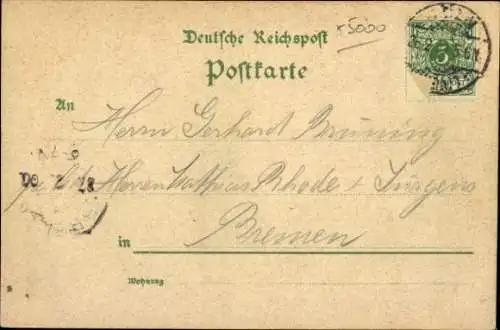 Deutsche Reichspost
x5000
Postkarte
5
An
Herrn Gerhard Brüning
Herren Mathias Rhode + Jürgens
in Bremen
Wohnung